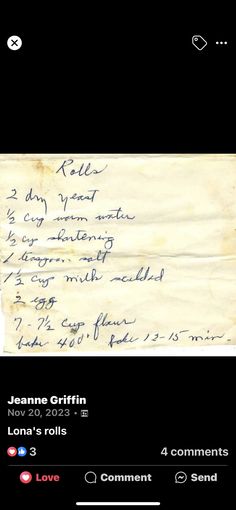 Rolls
2 dry yeast
½ cup warm water
½ cup shortening
1 teaspoon salt
1 ½ cup milk scalded
2 egg
7 - 7½ cup flour
bake 400° bake 12-15 min.
Jeanne Griffin
Nov 20, 2023 ·
Lona's rolls
3
4 comments
Love Comment Send